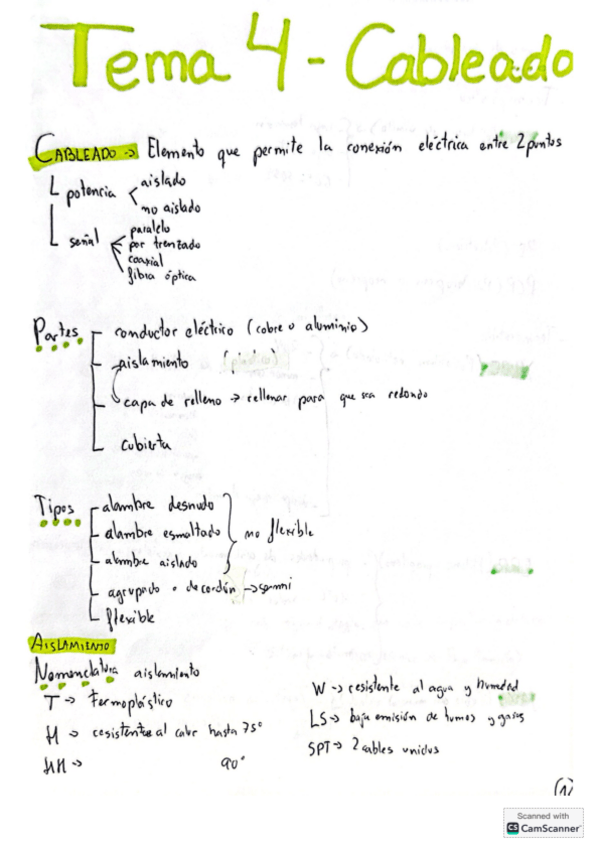 Tema 4 - Cableado
CABLEADO → Elemento que permite la conexión eléctrica entre 2 puntos
potencia
aislado
no aislado
señal
paralelo
por trenzado
coaxial
fibra óptica
Partes
conductor eléctrico (cobre o aluminio)
aislamiento
capa de relleno → rellenar para que sea redondo
cubierta
Tipos
alambre desnudo
alambre esmaltado
alambre aislado
no flexible
agrupado o de cordón → semi
flexible
AISLAMIENTO
Nomenclatura aislamiento
T → Termoplástico
H → resistente al calor hasta 75°
HH → 90°
W → resistente al agua y humedad
LS → baja emisión de humos y gases
SPT → 2 cables unidos
(1)
Scanned with
CS CamScanner